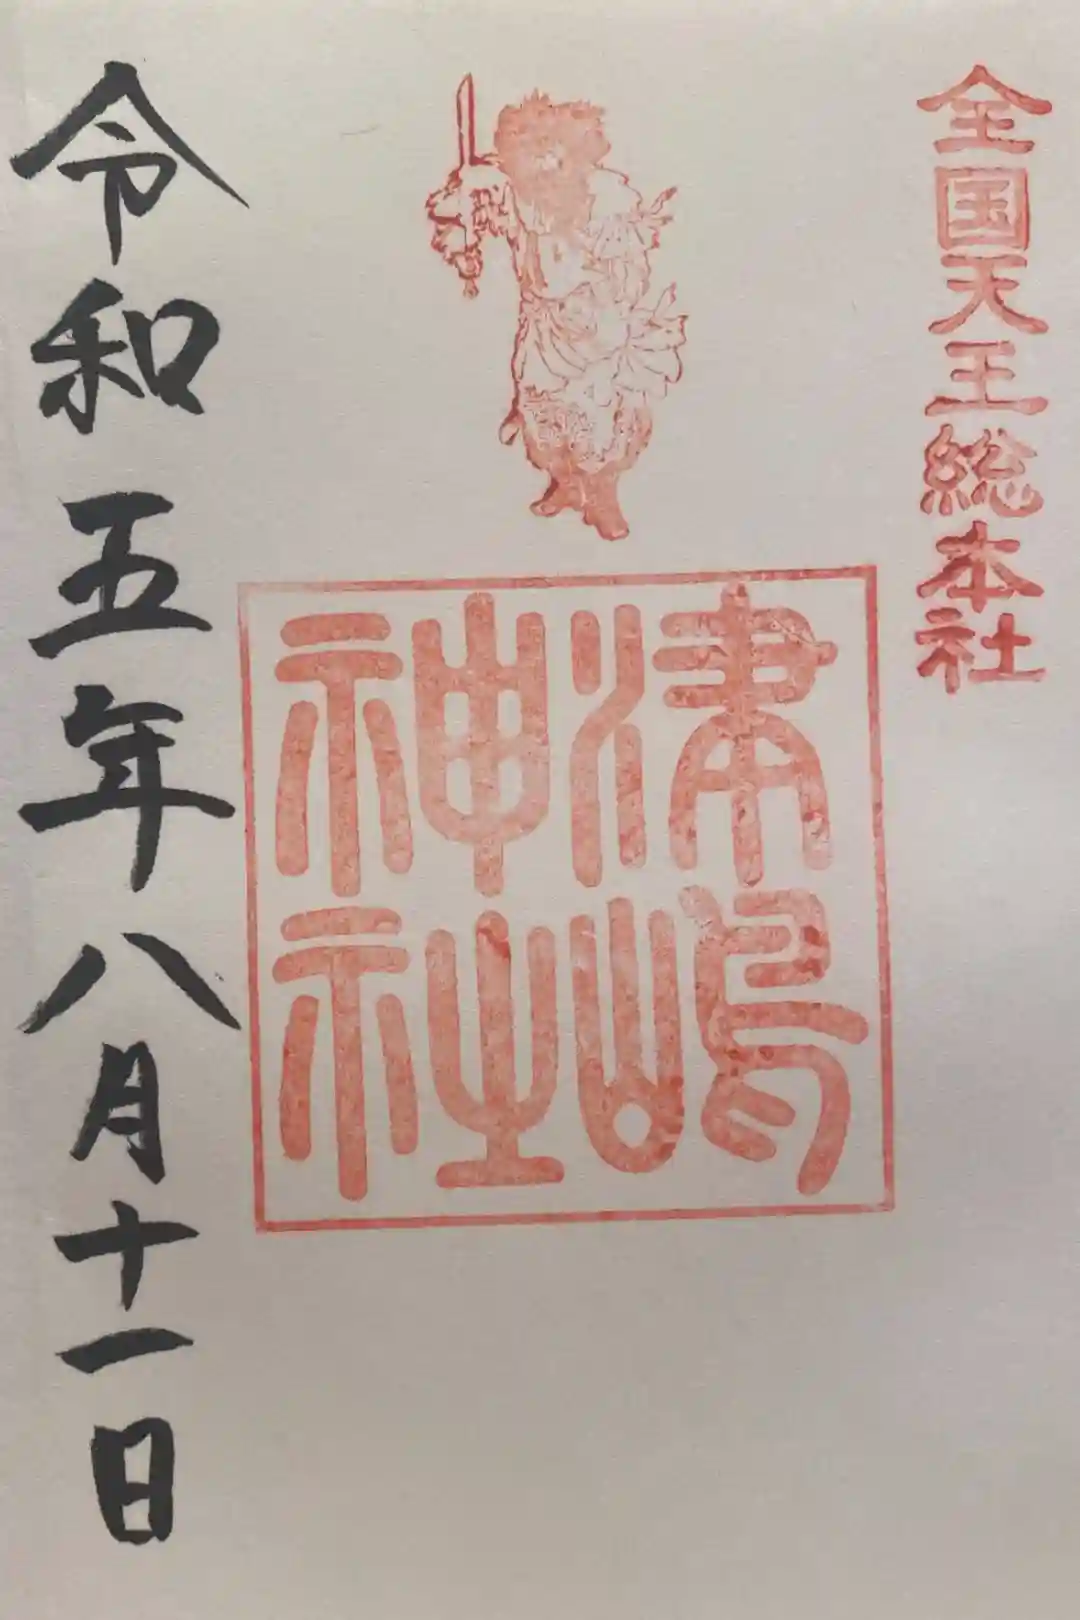 全国天王総本社
津嶋
神社
令和五年八月十一日